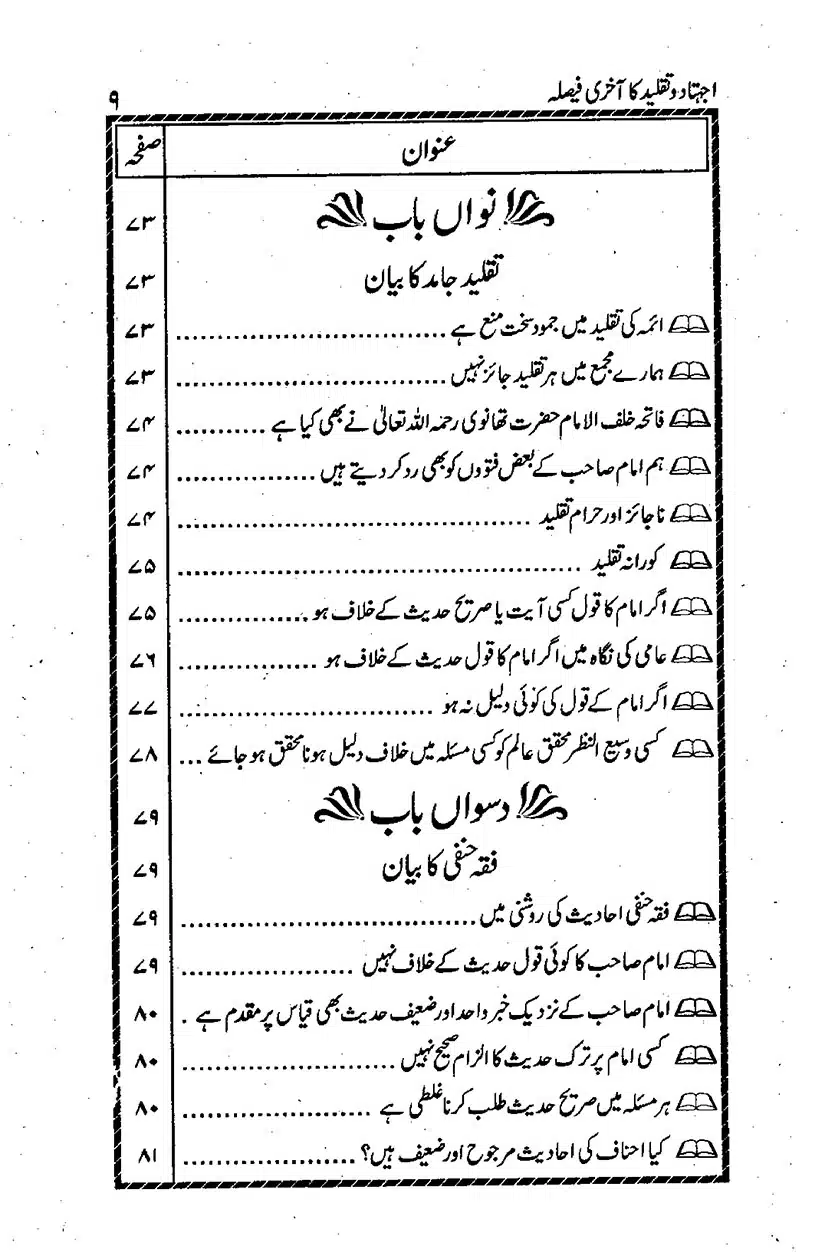 اجتہاد و تقلید کا آخری فیصلہ ۹
عنوان صفحہ
نواں باب ۷۳
تقلید جامد کا بیان ۷۳
ائمہ کی تقلید میں جمود سخت منع ہے ۷۳
ہمارے مجمع میں ہر تقلید جائز نہیں ۷۳
فاتحہ خلف الامام حضرت تھانوی رحمہ اللہ تعالیٰ نے بھی کیا ہے ۷۴
ہم امام صاحب کے بعض فتووں کو بھی رد کر دیتے ہیں ۷۴
ناجائز اور حرام تقلید ۷۴
کورانہ تقلید ۷۵
اگر امام کا قول کسی آیت یا صریح حدیث کے خلاف ہو ۷۵
عامی کی نگاہ میں اگر امام کا قول حدیث کے خلاف ہو ۷۶
اگر امام کے قول کی کوئی دلیل نہ ہو ۷۷
کسی وسیع النظر محقق عالم کو کسی مسئلہ میں خلاف دلیل ہونا محقق ہو جائے ۷۸
دسواں باب ۷۹
فقہ حنفی کا بیان ۷۹
فقہ حنفی احادیث کی روشنی میں ۷۹
امام صاحب کا کوئی قول حدیث کے خلاف نہیں ۷۹
امام صاحب کے نزدیک خبر واحد اور ضعیف حدیث بھی قیاس پر مقدم ہے ۸۰
کسی امام پر ترک حدیث کا الزام صحیح نہیں ۸۰
ہر مسئلہ میں صریح حدیث طلب کرنا غلطی ہے ۸۰
کیا احناف کی احادیث مرجوح اور ضعیف ہیں؟ ۸۱